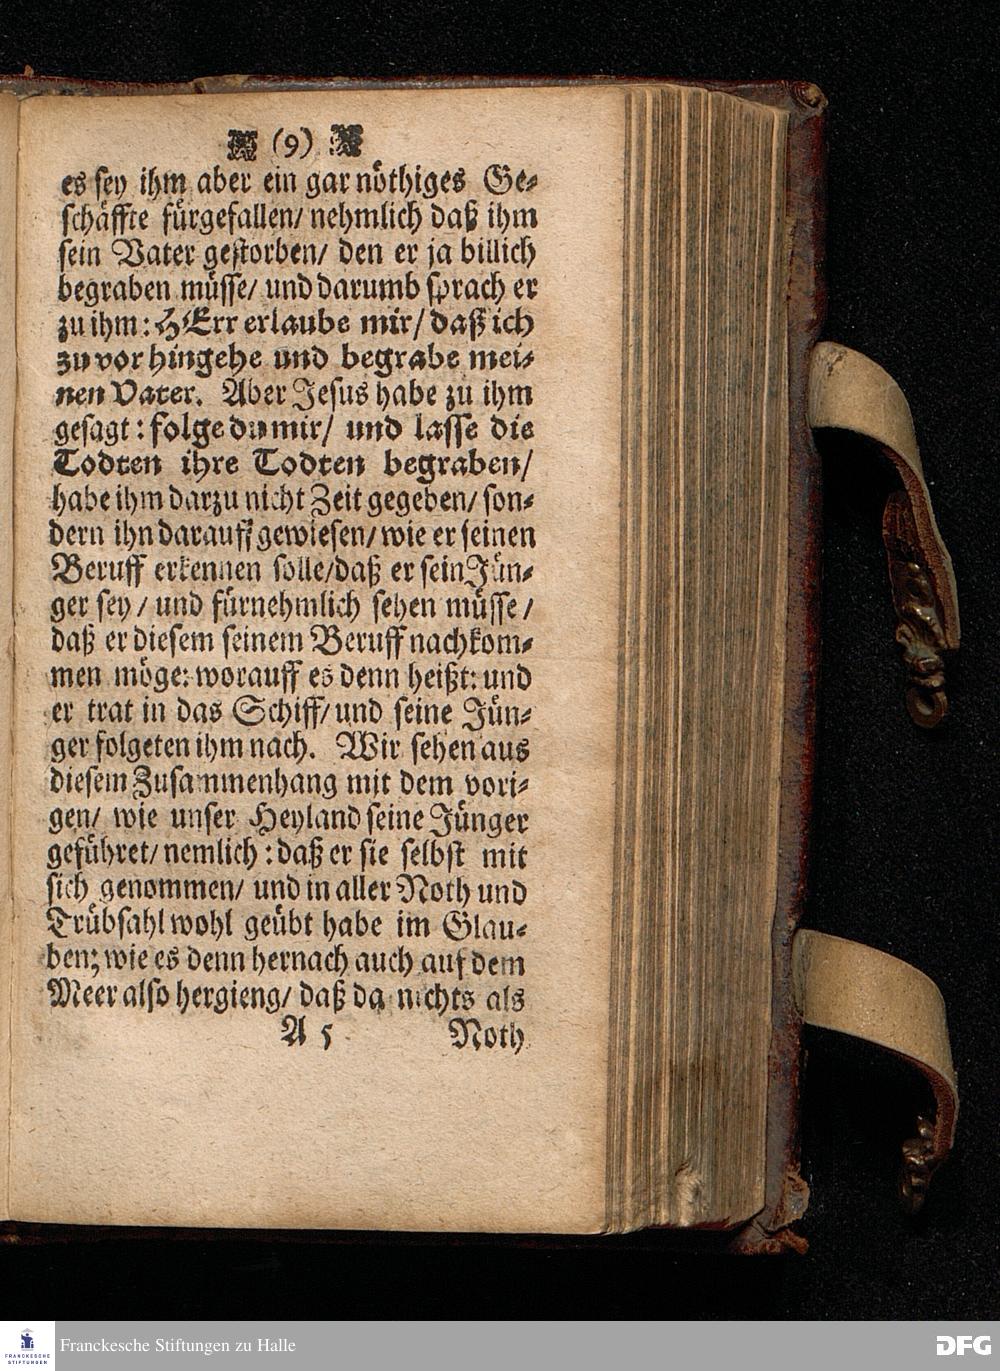 (9)
es sey ihm aber ein gar nöthiges Ge-
schäffte fürgefallen/ nehmlich daß ihm
sein Vater gestorben/ den er ja billich
begraben müsse/ und darumb sprach er
zu ihm: HErr erlaube mir/ daß ich
zuvor hingehe und begrabe mei-
nen Vater. Aber Jesus habe zu ihm
gesagt: folge du mir/ und lasse die
Todten ihre Todten begraben/
habe ihm darzu nicht Zeit gegeben/ son-
dern ihn darauff gewiesen/ wie er seinen
Beruff erkennen solle/ daß er sein Jün-
ger sey/ und fürnehmlich sehen müsse/
daß er diesem seinem Beruff nachkom-
men möge: worauff es denn heißt: und
er trat in das Schiff/ und seine Jün-
ger folgeten ihm nach. Wir sehen aus
diesem Zusammenhang mit dem vori-
gen/ wie unser Heyland seine Jünger
geführet/ nemlich: daß er sie selbst mit
sich genommen/ und in aller Noth und
Trübsahl wohl geübt habe im Glau-
ben; wie es denn hernach auch auf dem
Meer also hergieng/ daß da nichts als
A 5 Noth
FRANCKESCHE STIFTUNGEN
Franckesche Stiftungen zu Halle
DFG